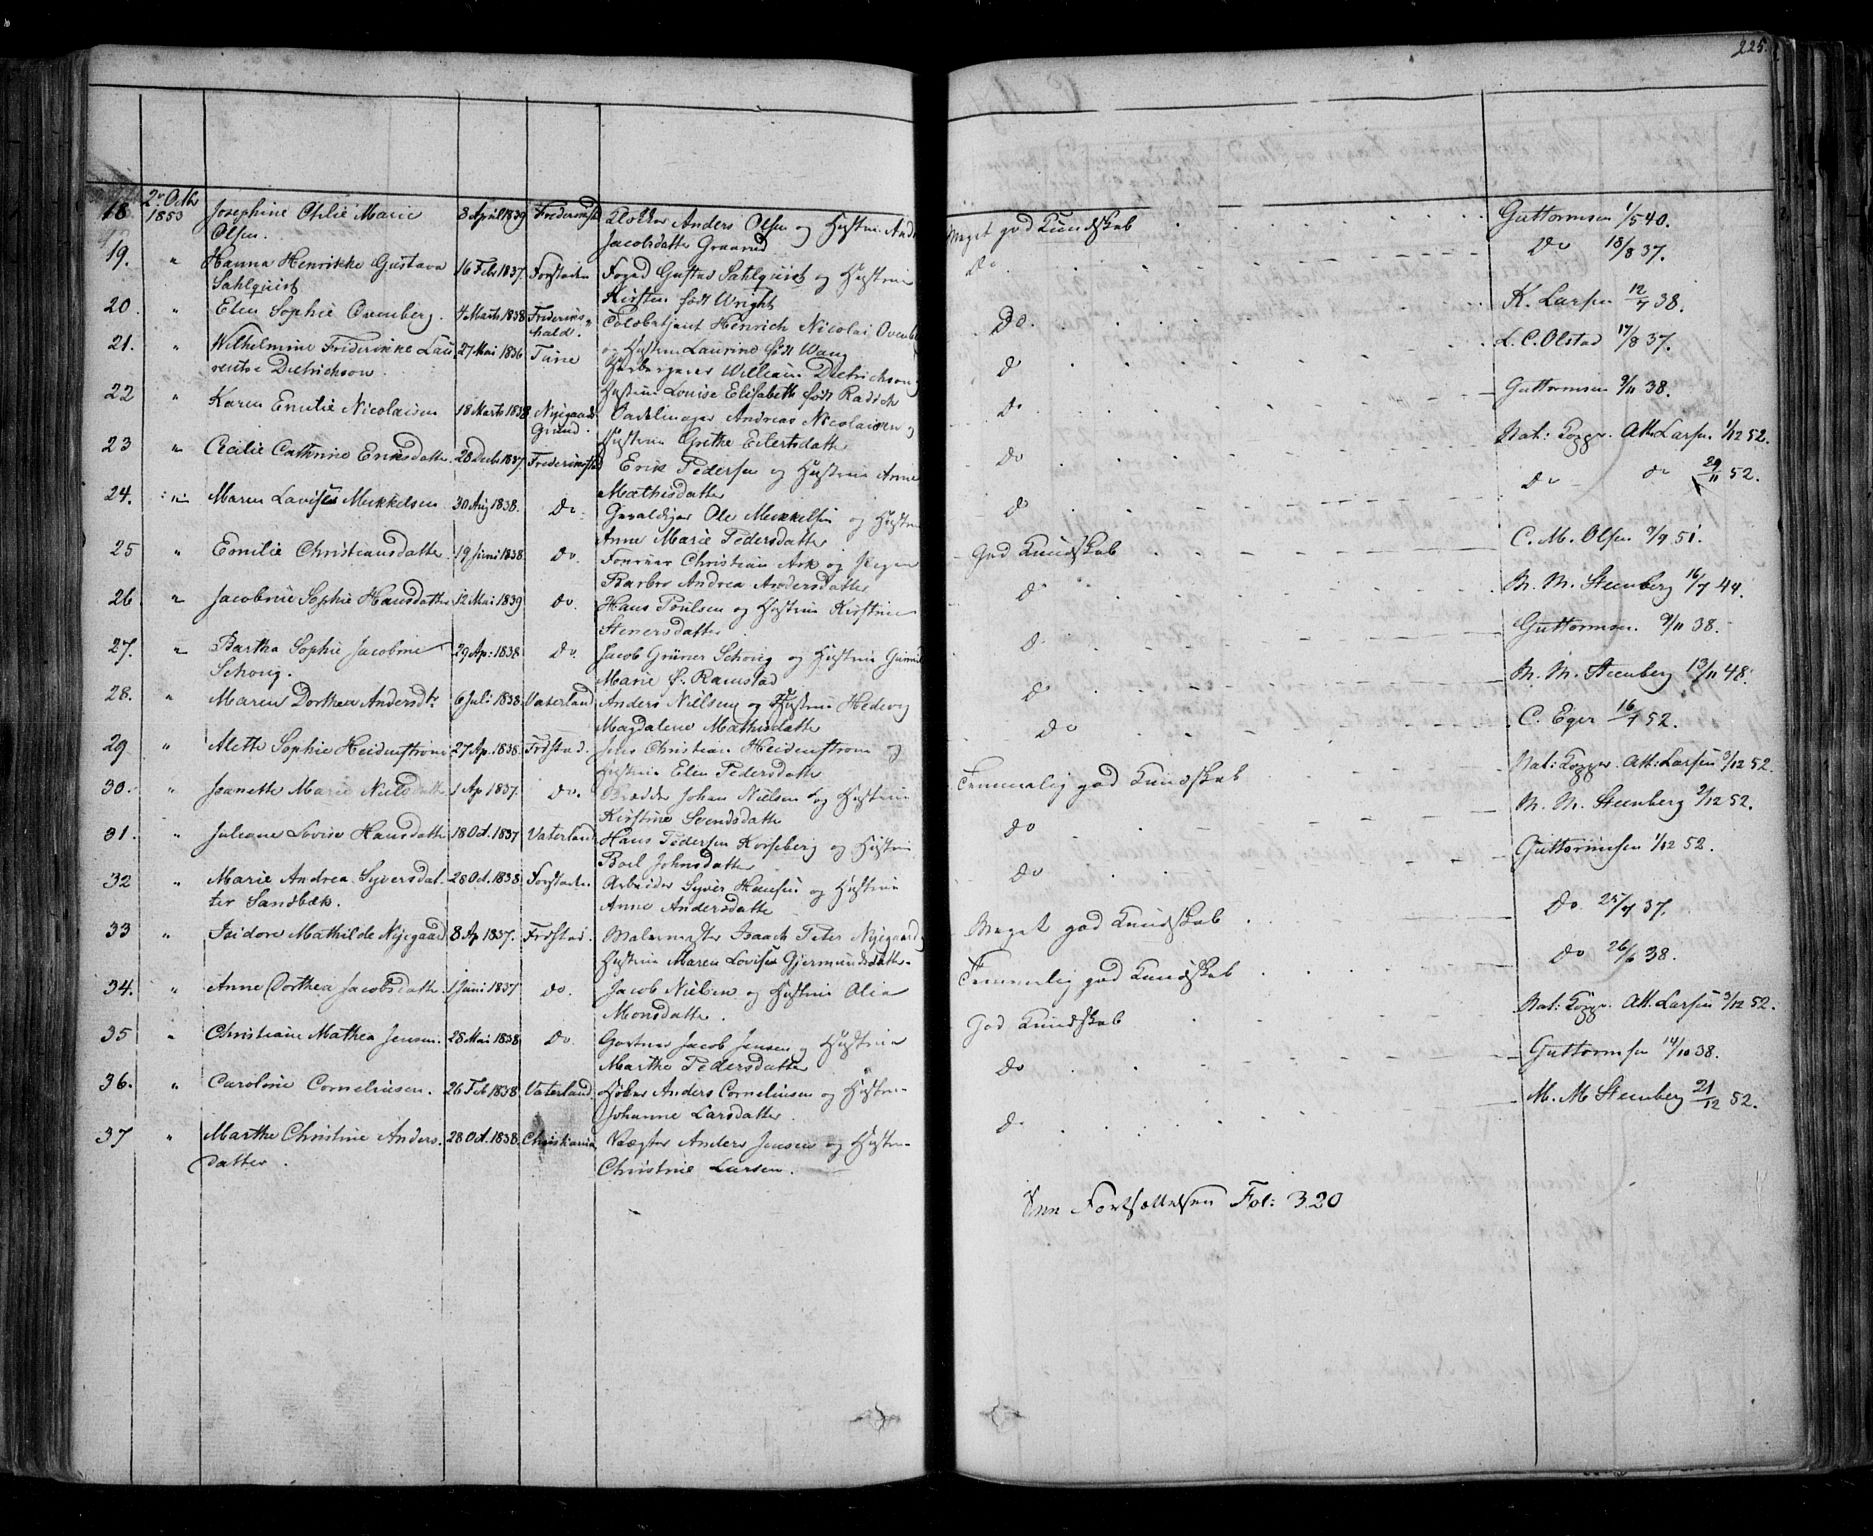 225.
18 2. Octb 1853 Josephine Otilie Marie 8 April 1839 Frederiksst Anders Olsen og Hustrue Andr Meget god Kundskab Guttormsen 1/5 40.
Olsen. Jacobsdatter Graarud
19. " Hanna Henrikke Gustava 16 Feb 1837 Forstaden Foged Gustav Sahlquist og Hustrue Do Do 18/8 37.
Sahlquist Kirsten født Wright
20. " Elen Sophie Ovenberg. 4 Marts 1838 Frederiks- Toldbetjent Henrich Nicolai Ovenb Do. K. Larsen 12/7 38.
hald. og Hustrue Laurine født Wang
21. " Wilhelmine Frederikke Lau 27 Mai 1836 Tune William Dietrichson Do L. C. Olstad 17/8 37.
rentse Dietrichson. Hustrue Louise Elisabeth født Radich
22 " Karen Emilie Nicolaisen 18 Marts 1838 Nyegaards Andreas Nicolaisen og Do Guttormsen 9/11 38.
Grund. Hustrue Grethe Eilertsdatter
23 " Cicilie Cathrine Eriksdatter 28 Decb 1837 Frederiksstad Erik Pedersen og Hustrue Anne Do Nat: Kopper. Att. Larsen 1/12 52.
Mathisdatter
24. " Maren Lavise Mikkelsen 30 Aug 1838. Do. Ole Mikkelsen og Hustrue Do Do Do 29/11 52.
Anne Marie Pedersdatter
25 " Emilie Christiansdatter 19 Juni 1838 Do. Christian Ark og Pigen God Kundskab C. M. Olsen 7/9 51.
Barbro Andrea Andersdatter
26 " Jacobine Sophie Hansdatter 12 Mai 1839 Do. Hans Poulsen og Hustrue Kirstine Do M. M. Steenberg 16/7 44.
Stenersdatter
27. " Bartha Sophie Jacobine 29 Ap: 1838 Do. Jacob Grüner Schoug og Hustrue Do Guttormsen. 9/11 38.
Schoug. Marie f. Ramstad
28. " Maren Dorthea Andersdtr 6 Juli 1838 Vaterland Anders Nilsen og Hustrue Hedevig Do M. M. Steenberg 13/11 48.
Magdalene Mathisdatter
29 " Alette Sophie Heidenstrøm 27 Ap. 1838 Frdstad. Jens Christian Heidenstrøm og Do C. Eger 16/7 52.
Hustrue Elen Pedersdatter
30. " Jeanette Marie Nielsdatter 1 Ap 1837. Do. Johan Nielsen og Hustrue Temmelig god Kundskab Nat: Kopper. Att. Larsen 3/12 52.
Kirstine Svendsdatter
31. " Juliane Lovise Hansdatter 18 Oct. 1837 Vaterland Hans Pedersen Korseberg og Hustrue Do M. M. Steenberg 9/12 52.
Boel Johnsdatter
32 " Marie Andrea Syversdat- 28 Oct. 1838. Forstaden Arbeider Syver Hansen og Hustrue Do Guttormsen 1/12 52.
ter Sandbæk. Anne Andersdatter
33 " Isidore Mathilde Nyegaard 8 Ap 1837. Frdstad. Malermester Isaach Peter Nyegaard Meget god Kundskab Do. 25/7 37.
Hustrue Maren Lovise Gjermundsdatter
34. " Anne Dorthea Jacobsdatter 1 Juni 1837 Do. Jacob Nielsen og Hustrue Olia Temmelig god Kundskab Do 26/ 38.
Monsdatter.
35 " Christiane Mathea Jensen. 28 Mai 1838 Do. Gartner Jacob Jensen og Hustrue God Kundskab Nat: Kopper. Att. Larsen 3/12 52.
Marthe Pedersdatter
36. " Caroline Corneliusen. 26 Feb 1838 Vaterland Anders Corneliusen og Hustrue Do Guttormsen 14/10 38.
Johanne Larsdatter.
37 " Marthe Christine Anders- 28 Oct. 1838. Christiania Vægter Anders Jensen og Hustrue Do M. M Steenberg 21/12 52.
datter. Christine Larsen.
Fortsættelsen Fol: 320